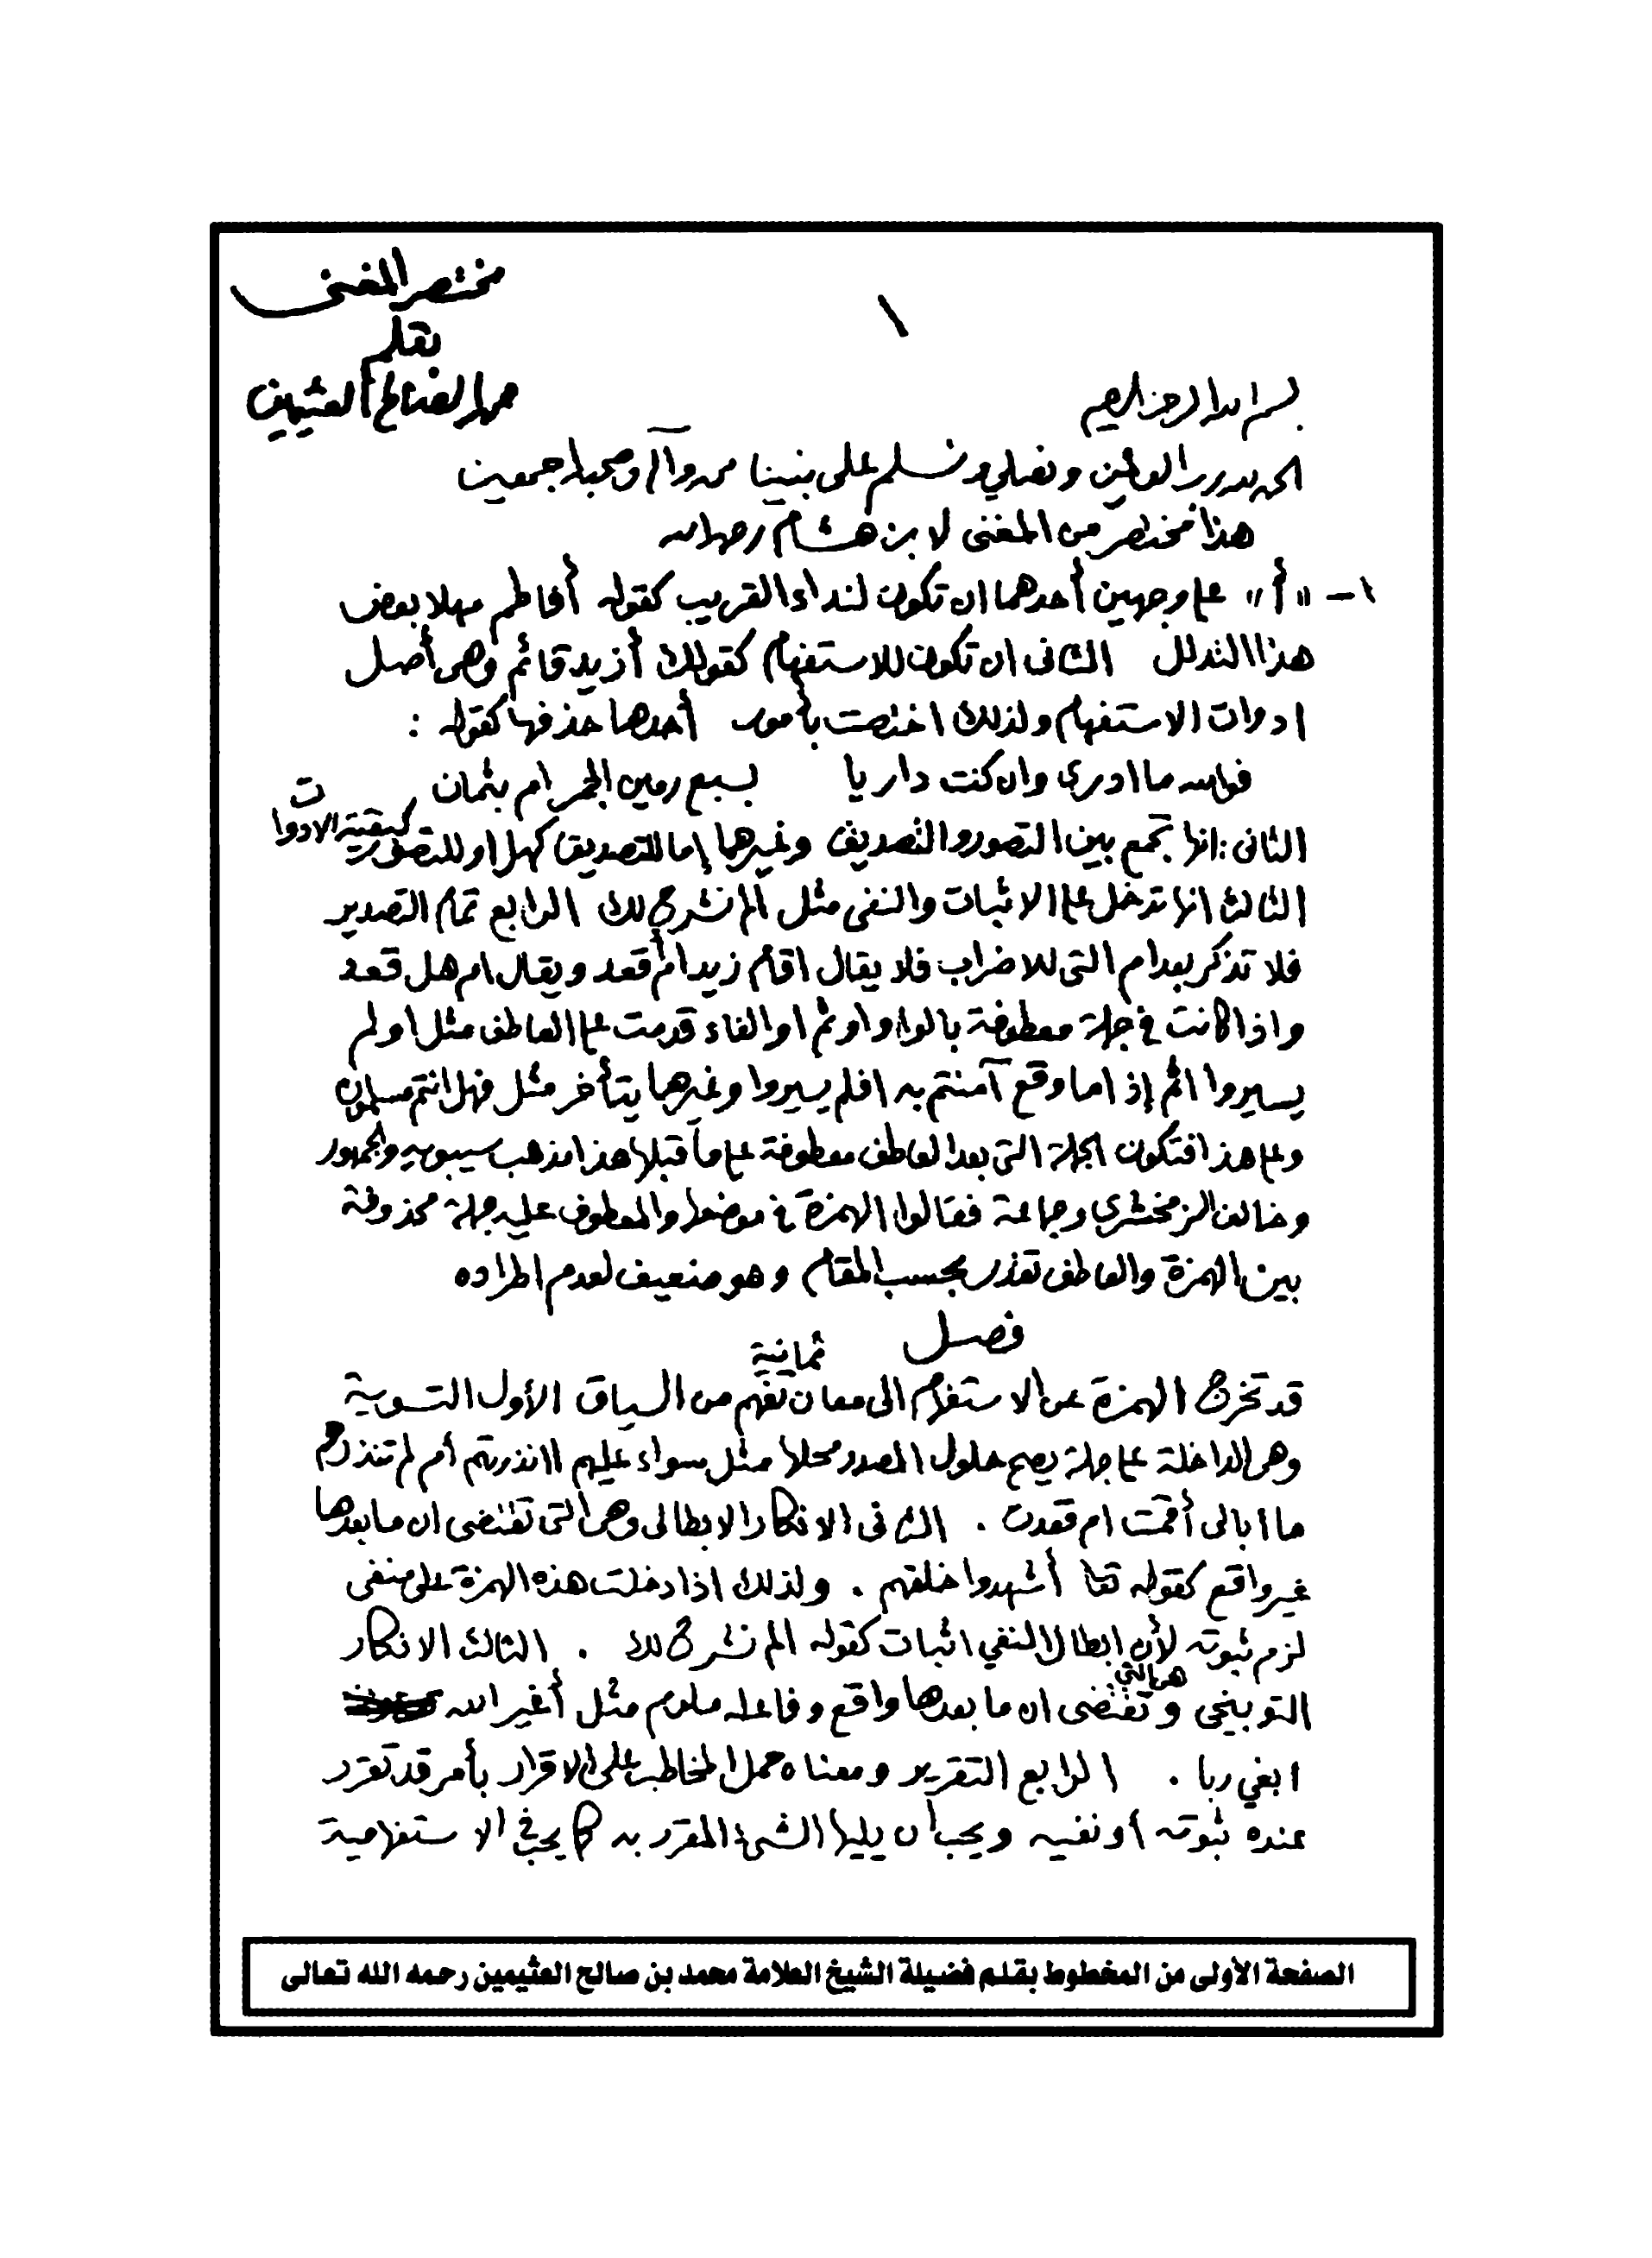 مختصر المغنى
بقلم
محمد الصالح العثيمين
١
بسم الله الرحمن الرحيم
الحمد لله رب العالمين ونصلي ونسلم على نبينا محمد وآله وصحبه اجمعين
هذا مختصر من المغنى لابن هشام رحمه الله
١ - "أ" على وجهين أحدهما ان تكون لنداء القريب كقوله أفاطم مهلا بعض
هذا التدلل الثانى ان تكون للاستفهام كقولك أزيد قائم وهى أصل
ادوات الاستفهام ولذلك اختصت بأمور أحدها حذفها كقوله :
فوالله ما ادرى وان كنت داريا بسبع رمين الجمر ام بثمان
الثانى : انها تجمع بين التصور والتصديق وغيرها إما للتصديق كهل او للتصور كبقية الادوات
الثالث انها تدخل على الاثبات والنفى مثل ألم نشرح لك الرابع تمام التصدير
فلا تذكر بعد ام التى للاضراب فلا يقال اقام زيد ام أقعد ويقال ام هل قعد
واذا كانت في جملة معطوفة بالواو او ثم او الفاء قدمت على العاطف مثل اولم
يسيروا اثم إذا ما وقع آمنتم به افلم يسيروا وغيرها يتأخر مثل فهل انتم مسلمون
وعلى هذا فتكون الجملة التى بعد العاطف معطوفة على ما قبلها هذا مذهب سيبويه والجمهور
وخالف الزمخشرى وجماعة فقالوا الهمزة في موضعها والمعطوف عليه جملة محذوفة
بين الهمزة والعاطف تقدر بحسب المقام وهو ضعيف لعدم اطراده
فصل
قد تخرج الهمزة عن الاستفهام الى معان ثمانية تفهم من السياق الأول التسوية
وهى الداخلة على جملة يصح حلول المصدر محلها مثل سواء عليهم اانذرتهم أم لم تنذرهم
ما ابالى أقمت ام قعدت . الثانى الانكار الابطالى وهى التى تقتضى ان ما بعدها
غير واقع كقوله تعا أشهدوا خلقهم . ولذلك اذا دخلت هذه الهمزة على منفى
لزم ثبوته لأن ابطال النفي اثبات كقوله الم نشرح لك . الثالث الانكار
التوبيخى وهى التي تقتضى ان ما بعدها واقع وفاعله ملوم مثل أغير الله
ابغي ربا . الرابع التقرير ومعناه حمل المخاطب على الاقرار بأمر قد تقرر
عنده ثبوته او نفيه ويجب أن يليها الشىء المقرر به كما يجب في الاستفهامية
الصفحة الأولى من المخطوط بقلم فضيلة الشيخ العلامة محمد بن صالح العثيمين رحمه الله تعالى